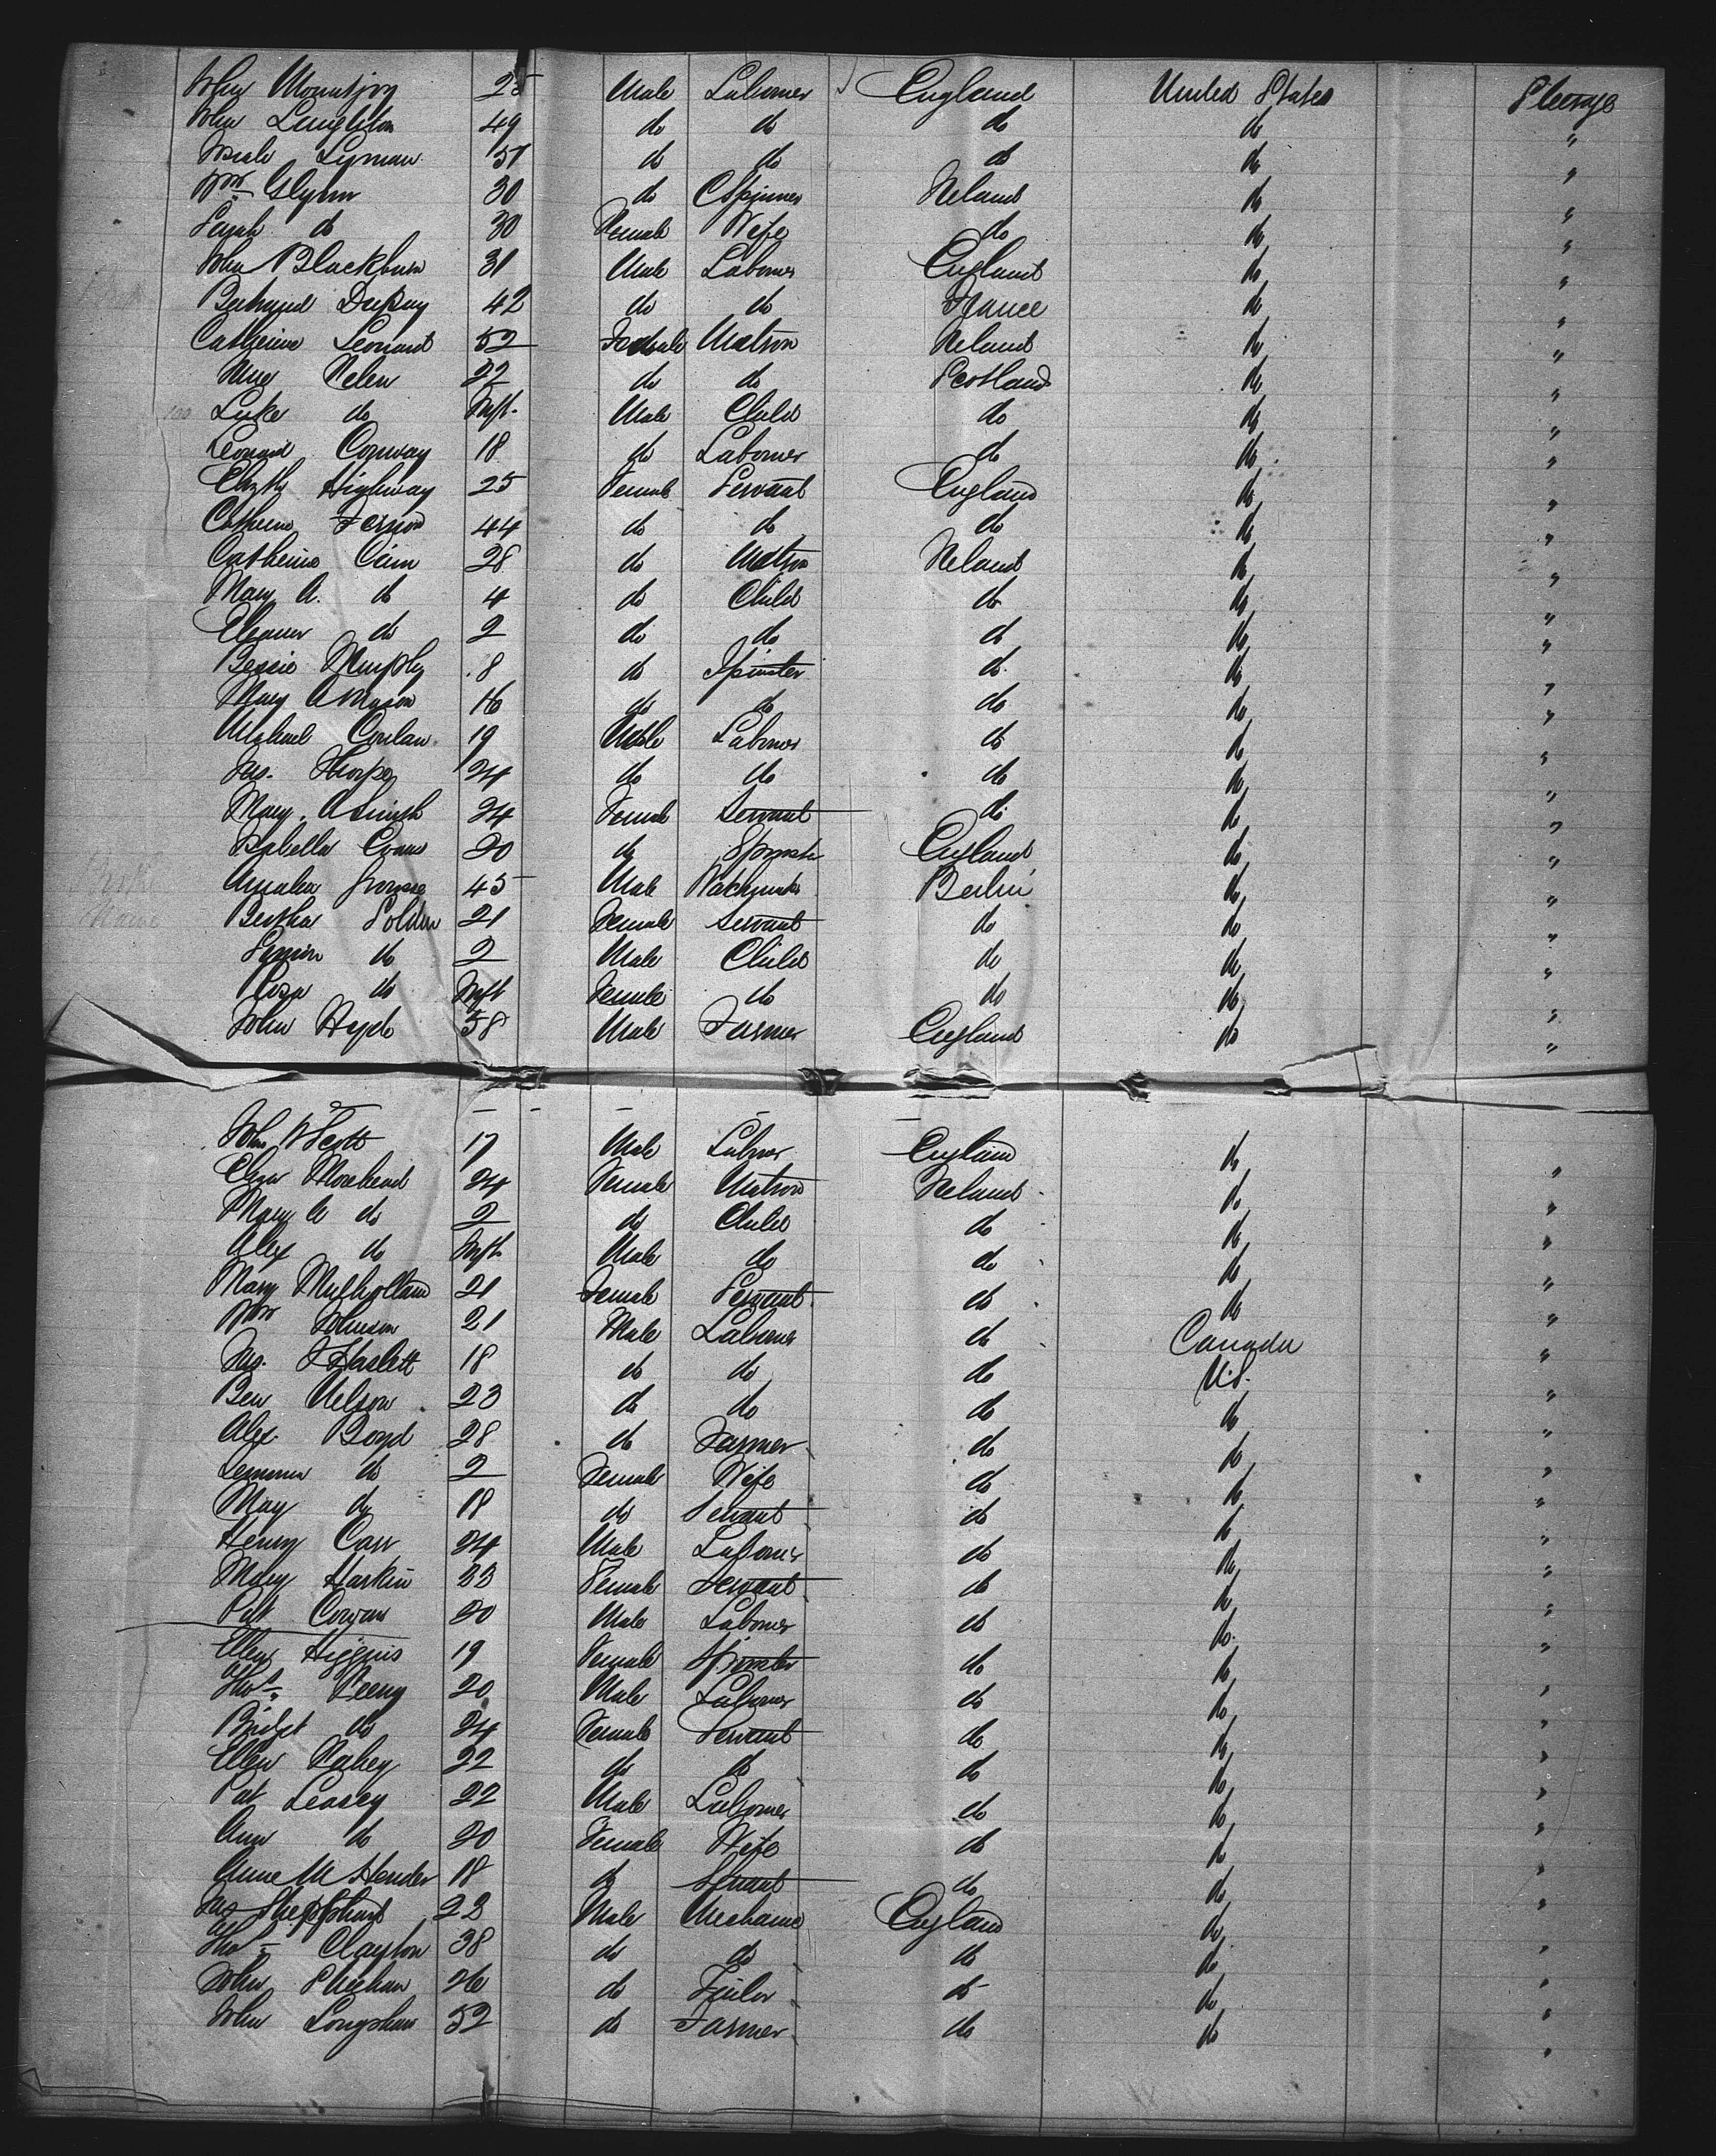 John Mountjoy 25 Male Laborer England United States Steerage
John Langhton 49 do do do do "
Lyman 51 do do do do "
Wm Glynn 30 do C Spinner Ireland do "
Sarah do 30 Female Wife do do "
John Blackburn 31 Male Laborer England do "
42 do do France do "
Catherine Leonard 52 Female Matron Ireland do "
Helen 22 do do Scotland do "
100 Luke do Inft. Male Child do do "
Leonard Conway 18 do Laborer do do "
Elizth Highway 25 Female Servant England do "
Catherine 44 do do do do "
Catherine 28 do Matron Ireland do "
Mary A. do 4 do Child do do "
Eleanor do 2 do do do do "
Bessie Murphy 8 do Spinster do do "
Mary A Mason 16 do do do do "
Michael Conlan 19 Male Laborer do do "
Jas. Thorpe 24 do do do do "
Mary A Smith 24 Female Servant do do "
Isabella Evans 20 do Spinster England do "
45 Male Watchmaker Berlin do "
Bertha 21 Female Servant do do "
do 2 Male Child do do "
Rosa do Inft Female do do do "
John Hyde 58 Male Farmer England do "
John W Scott 17 Male Labrer England do "
Eliza Morehead 24 Female Matron Ireland do "
Mary A do 2 do Child do do "
Alex do Inft Male do do do "
Mary Mulholland 21 Female Servant do do "
Wm Johnson 21 Male Laborer do Canada "
Jas. Haslett 18 do do do U.S. "
Ben Nelson 23 do do do do "
Alex Boyd 28 do Farmer do do "
do 2 Female Wife do do "
May do 18 do Servant do do "
Henry Carr 24 Male Laborer do do "
Mary Harkin 33 Female Servant do do "
Pat Cowan 20 Male Laborer do do "
Ellen Higgins 19 Female Spinster do do "
Thos 20 Male Laborer do do "
Bridget do 24 Female Servant do do "
Ellen Fahey 22 do do do do "
Pat Leasey 22 Male Laborer do do "
Ann do 20 Female Wife do do "
Anne M Hender 18 do Servant do do "
Jas Shepphard 23 Male Mechanic England do "
Thos Clayton 38 do do do do "
John Sheehan 26 do Tailor do do "
John Longshaw 52 do Farmer do do "